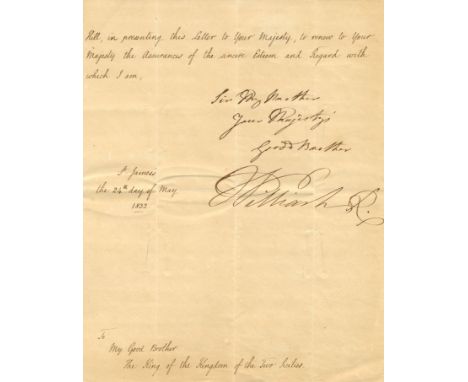 Hill, in presenting this Letter to Your Majesty, to renew to Your
Majesty the Assurances of the sincere Esteem and Regard with
which I am,
Sir My Brother
Your Majesty's
Good Brother
St James's
the 24th day of May
1833
William R.
To
My Good Brother
The King of the Kingdom of the Two Sicilies.